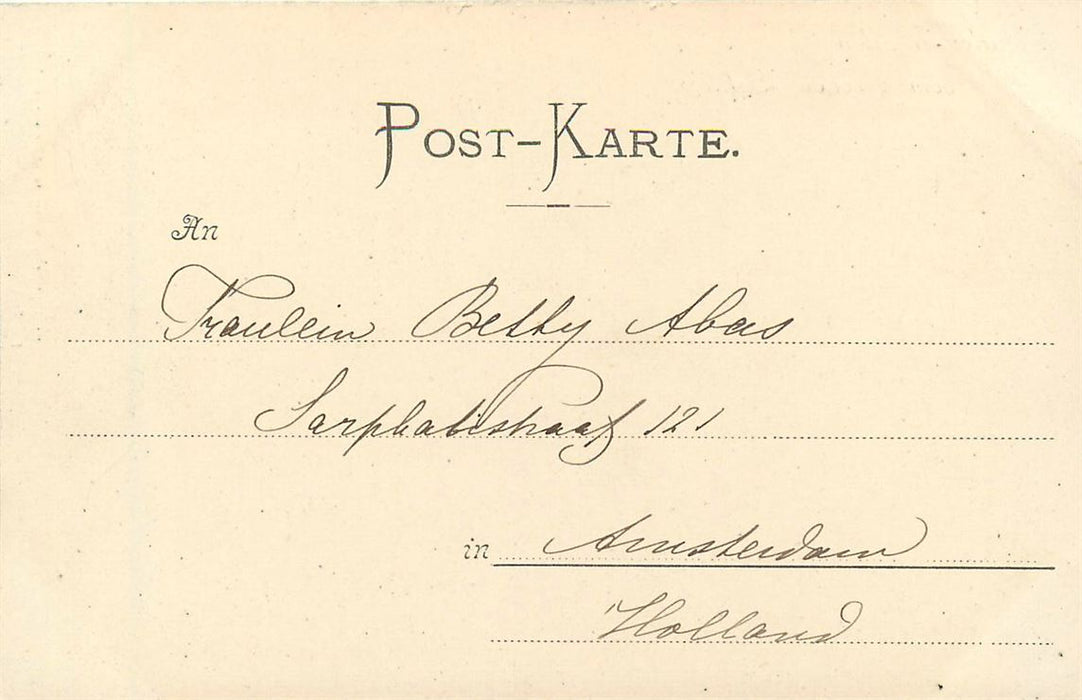 POST-KARTE.
An
Fraulein Betty Abas
Sarphatistraat 121
in Amsterdam
Holland